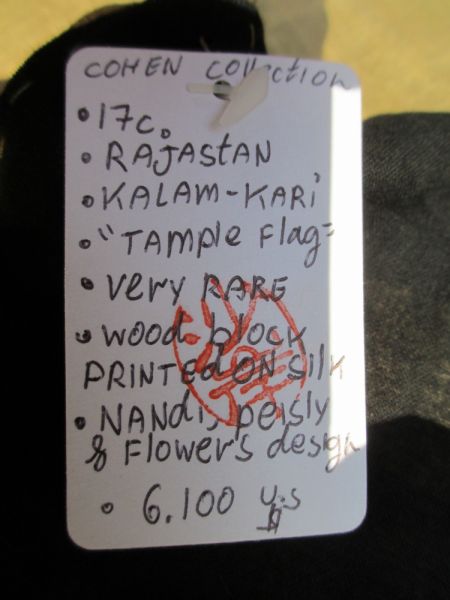 COHEN Collection
• 17c.
• RAJAStAN
• KALAM-KARi
• "TAMPLE Flag"
• very RARE
• wood block
PRINTEd ON Silk
• NANdis peisly
& Flowers design
• 6.100 u.s $